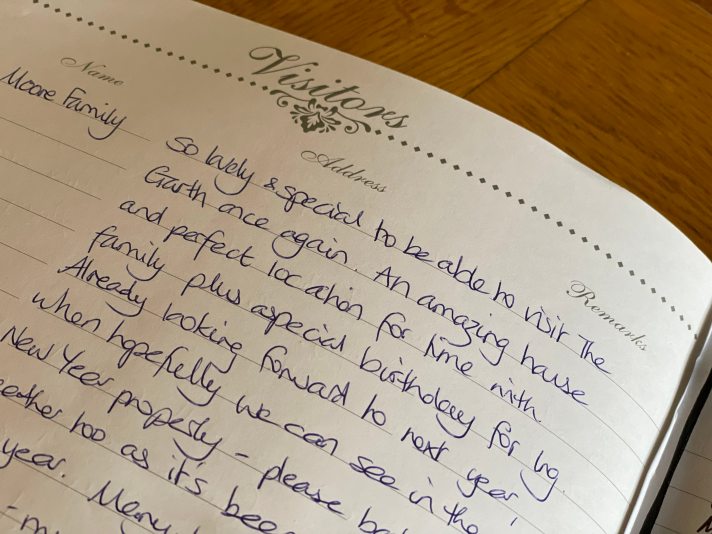 Visitors
Name
Address
Remarks
Moore Family
So lovely & special to be able to visit The
Garth once again. An amazing house
and perfect location for time with
family plus a special birthday for
Already looking forward to next year
when hopefully we can see in the
New Year properly - please
too as it's been
year. Many